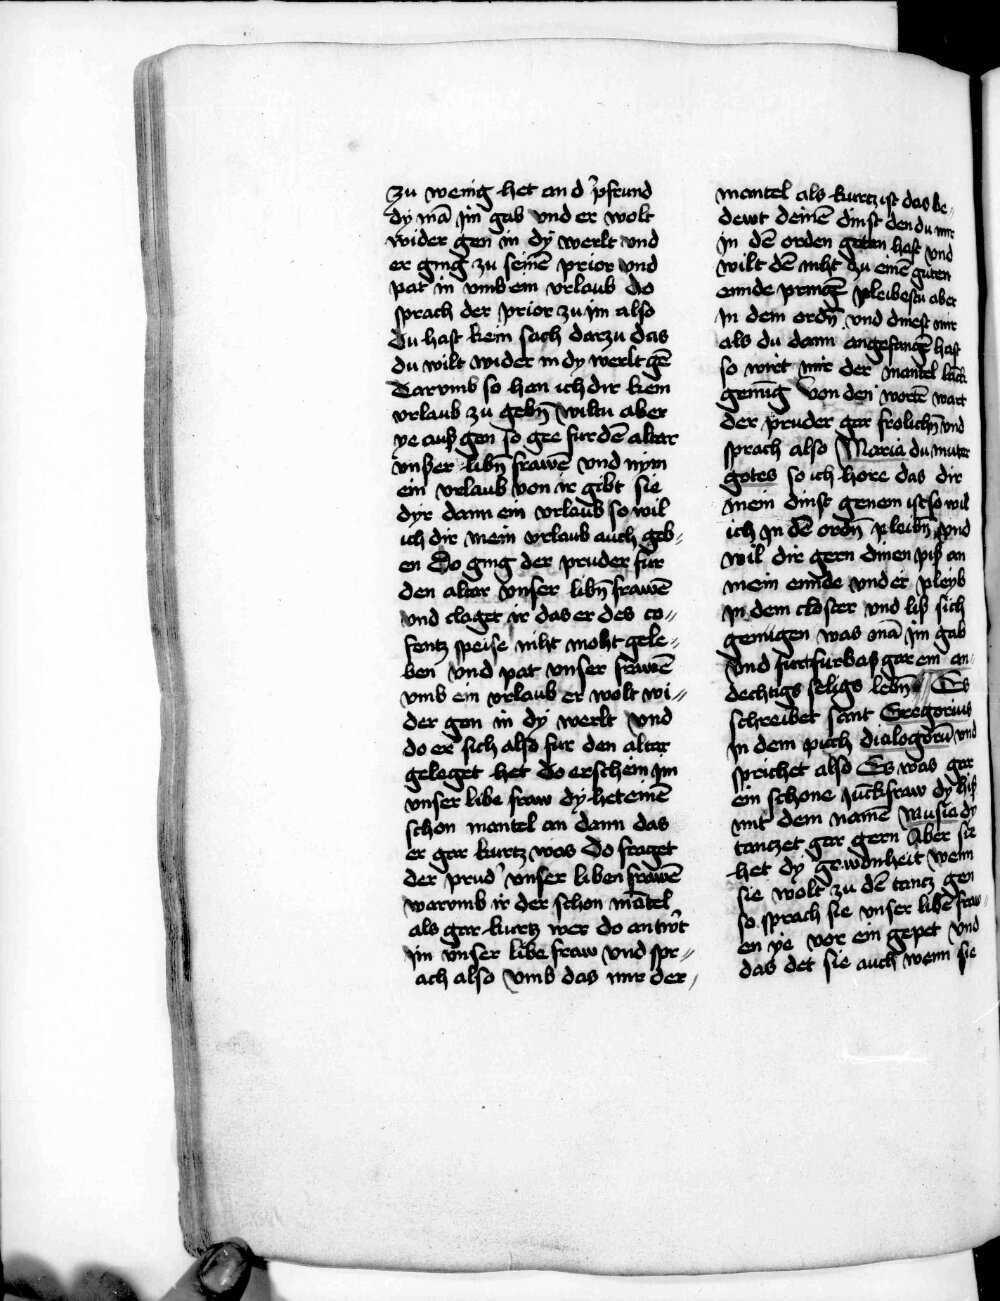 zu wenig het an d' pfrund
dy mā jm gab vnd er wolt
wider gen in dy werlt vnd
er ging zu seinē prior vnd
pat in vmb ein vrlaub do
sprach der prior zu im also
du hast kein sach darzu das
du wilt wider in dy werlt gē
Darumb so han ich dir kein
vrlaub zu gebn̄ wiltu aber
ye auß gen so gee fur dē altar
vnßer libn̄ frawē vnd nym
ein vrlaub von ir gibt sie
dyr dann ein vrlaub so wil
ich dir mein vrlaub auch geb⸗
en Do ging der pruder fur
den altar vnser libn̄ frawē
vnd claget ir das er des co⸗
fentz speise niht moht gele⸗
ben vnd pat vnser frawē
vmb ein vrlaub er wolt wi⸗
der gen in dy werlt vnd
do er sich also fur den altar
geleget het do erschein jm
vnser libe fraw dy het einē
schon mantel an dann das
er gar kurtz was Do fraget
der prud' vnser liben frawē
warumb ir der schon mātel
als gar kurtz wer do antwrt
jm vnser libe fraw vnd spr⸗
ach also vmb das mir der
mantel als kurtz ist das be⸗
dewt deinē dinst den du mir
jn dē orden getan hast vnd
wilt dē niht zu einē guten
ennde pringē pleibestu aber
jn dem ordn̄ vnd dinest mir
als du dann angefangē hast
so wirt mir der mantel
genūg Von den wortē wart
der pruder gar frolichn̄ vnd
sprach also Maria du muter
gotes so ich hore das dir
mein dinst genem ist so wil
ich jn dē ordn̄ pleibn̄ vnd
wil dir gern dinen piß an
mein ennde vnd er pleyb
jn dem closter vnd liß sich
genugen was mā jm gab
vnd furt furbaß gar ein an⸗
dechtigs seligs lebn̄ Es
schreibet sant Gregorius
jn dem puch dialogorū vnd
sprichet also Es was gar
ein schone juckfraw dy hiß
mit dem namē Musia dy
tanczet gar gern Aber sie
het dy gewonheit wenn
sie wolt zu dē tantz gen
so sprach sie vnser libē fraw⸗
en ye vor ein gepet vnd
das det sie auch wenn sie